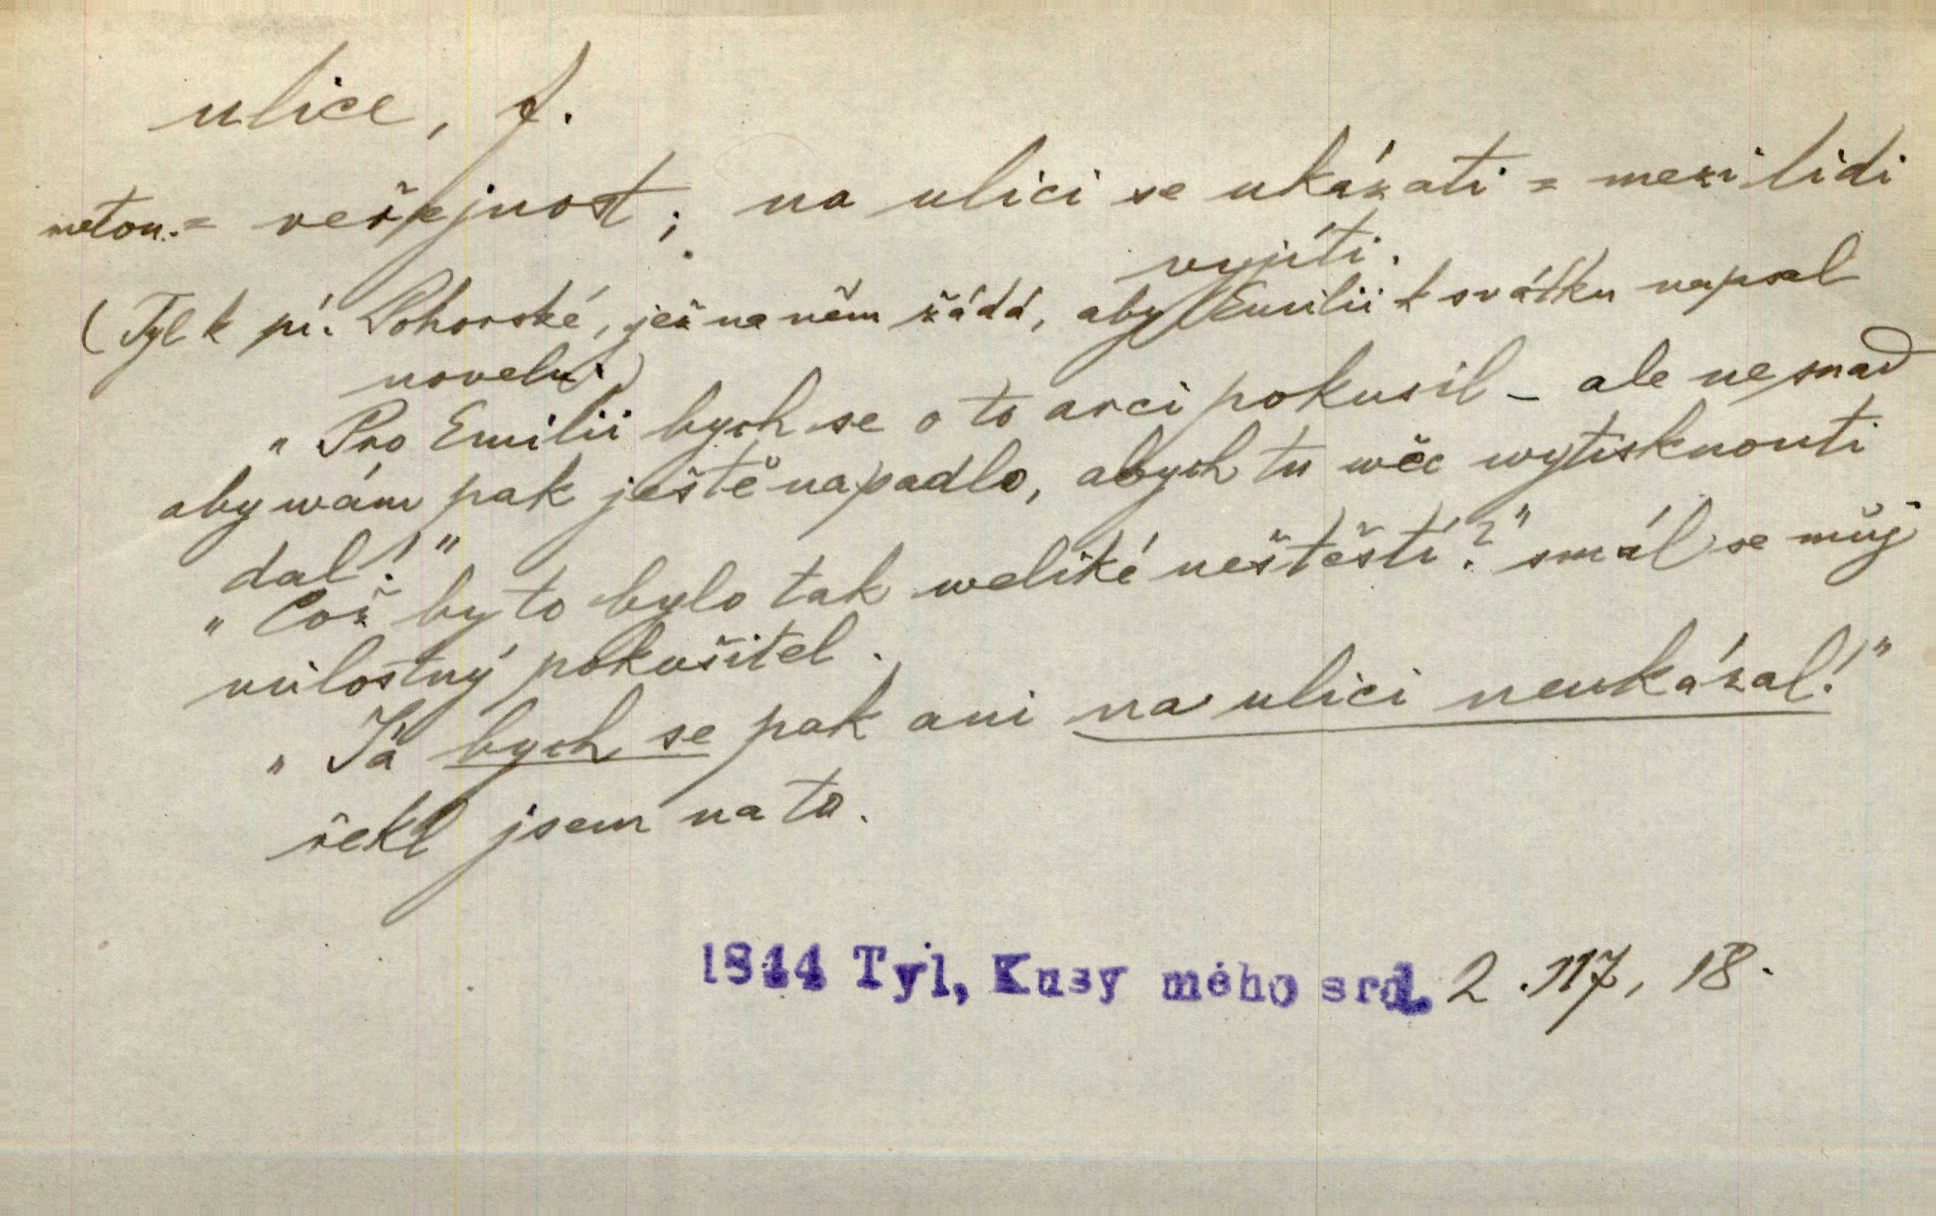 ulice, f.
meton. = veřejnost; na ulici se ukázati = mezi lidi
vyjíti.
(Tyl k pí. Pohorské, jež na něm žádá, aby Emilii k svátku napsal
novelu)
„Pro Emilii bych se o to arci pokusil – ale ne snad
aby wám pak ještě napadlo, abych tu wěc wytisknouti
dal!"
„Což by to bylo tak weliké neštěstí?" smál se můj
milostný pokušitel.
„Já bych se pak ani na ulici neukázal!"
řekl jsem na to.
1844 Tyl, Kusy mého srd. 2. 117, 18.